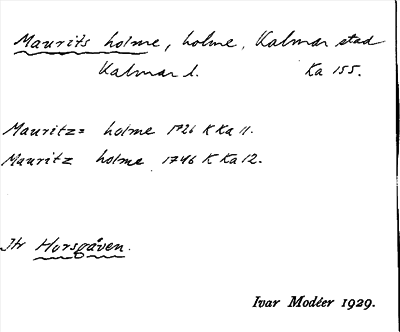 Maurits holme, holme, Kalmar stad
Kalmar l. Ka 155.
Mauritz= holme 1726 K Ka 11.
Mauritz holme 1746 K Ka 12.
Jfr Horsgåven.
Ivar Modéer 1929.